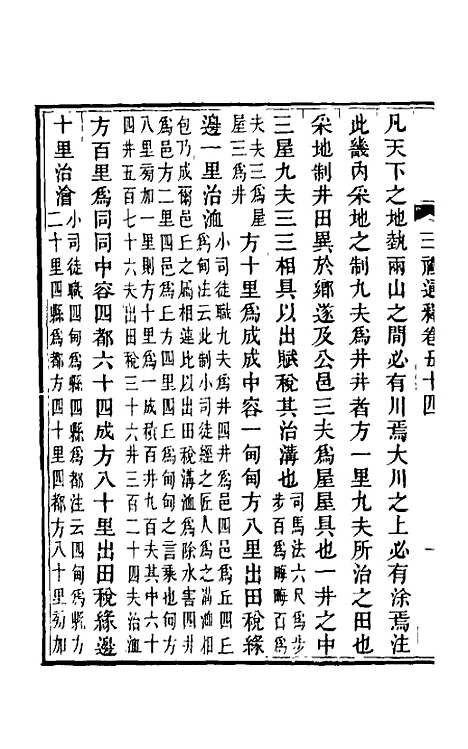 三禮通釋卷五十四
凡天下之地埶兩山之間必有川焉大川之上必有涂焉注
此畿內采地之制九夫爲井井者方一里九夫所治之田也
采地制井田異於鄉遂及公邑三夫爲屋屋具也一井之中
三屋九夫三三相具以出賦稅其治溝也司馬法六尺爲步
步百爲畮畮百爲
夫夫三爲屋
屋三爲井
方十里爲成成中容一甸甸方八里出田稅緣
邊一里治洫小司徒職九夫爲井四井爲邑四邑爲丘四丘
爲甸注云此制小司徒經之匠人爲之溝洫相
包乃成爾邑丘之屬相連比以出田稅溝洫爲除水害四井
爲邑方二里四邑爲丘方四里四丘爲甸甸之言乘也甸方
八里㫄加一里則方十里爲一成積百井九百夫其中六十
四井五百七十六夫出田稅三十六井三百二十四夫治洫
方百里爲同同中容四都六十四成方八十里出田稅緣邊
十里治澮小司徒職四甸爲縣四縣爲都注云四甸爲縣方
二十里四縣爲都方四十里四都方八十里㫄加